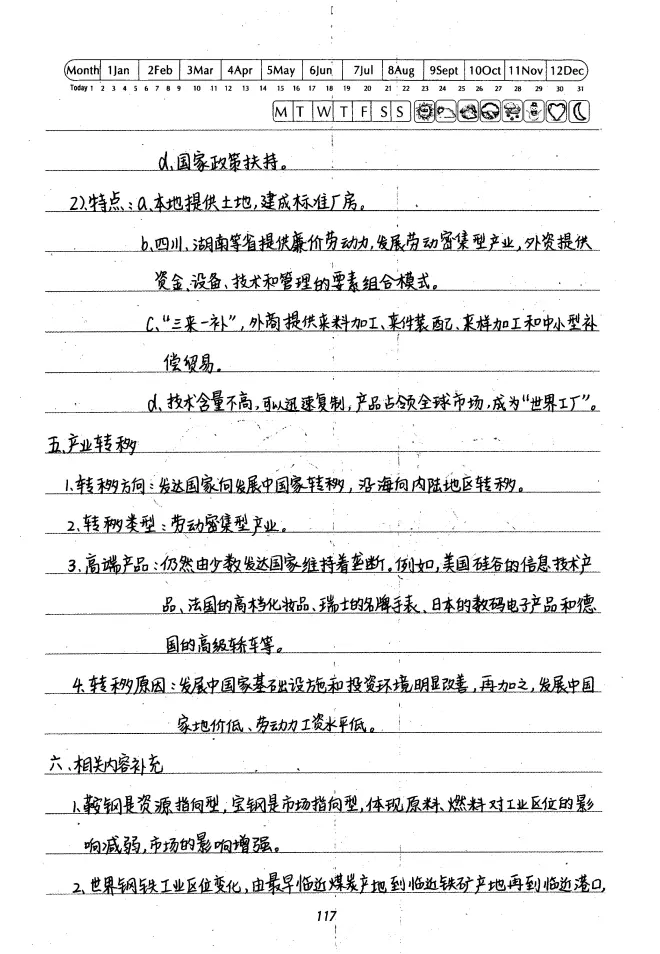 Month 1Jan 2Feb 3Mar 4Apr 5May 6Jun 7Jul 8Aug 9Sept 10Oct 11Nov 12Dec
Today 1 2 3 4 5 6 7 8 9 10 11 12 13 14 15 16 17 18 19 20 21 22 23 24 25 26 27 28 29 30 31
M T W T F S S
d、国家政策扶持。
2).特点:a、本地提供土地,建成标准厂房。
b.四川、湖南等省提供廉价劳动力,发展劳动密集型产业,外资提供
资金、设备、技术和管理的要素组合模式。
C、“三来一补”,外商提供来料加工、来件装配、来样加工和中小型补
偿贸易。
d、技术含量不高,可以迅速复制,产品占领全球市场,成为“世界工厂”。
五.产业转移
1.转移方向:发达国家向发展中国家转移,沿海向内陆地区转移。
2.转移类型:劳动密集型产业。
3.高端产品:仍然由少数发达国家维持着垄断。例如,美国硅谷的信息技术产
品、法国的高档化妆品、瑞士的名牌手表、日本的数码电子产品和德
国的高级轿车等。
4.转移原因:发展中国家基础设施和投资环境明显改善,再加之,发展中国
家地价低、劳动力工资水平低。
六、相关内容补充
1.鞍钢是资源指向型,宝钢是市场指向型,体现原料、燃料对工业区位的影
响减弱,市场的影响增强。
2、世界钢铁工业区位变化,由最早临近煤炭产地到临近铁矿产地再到临近港口,
117